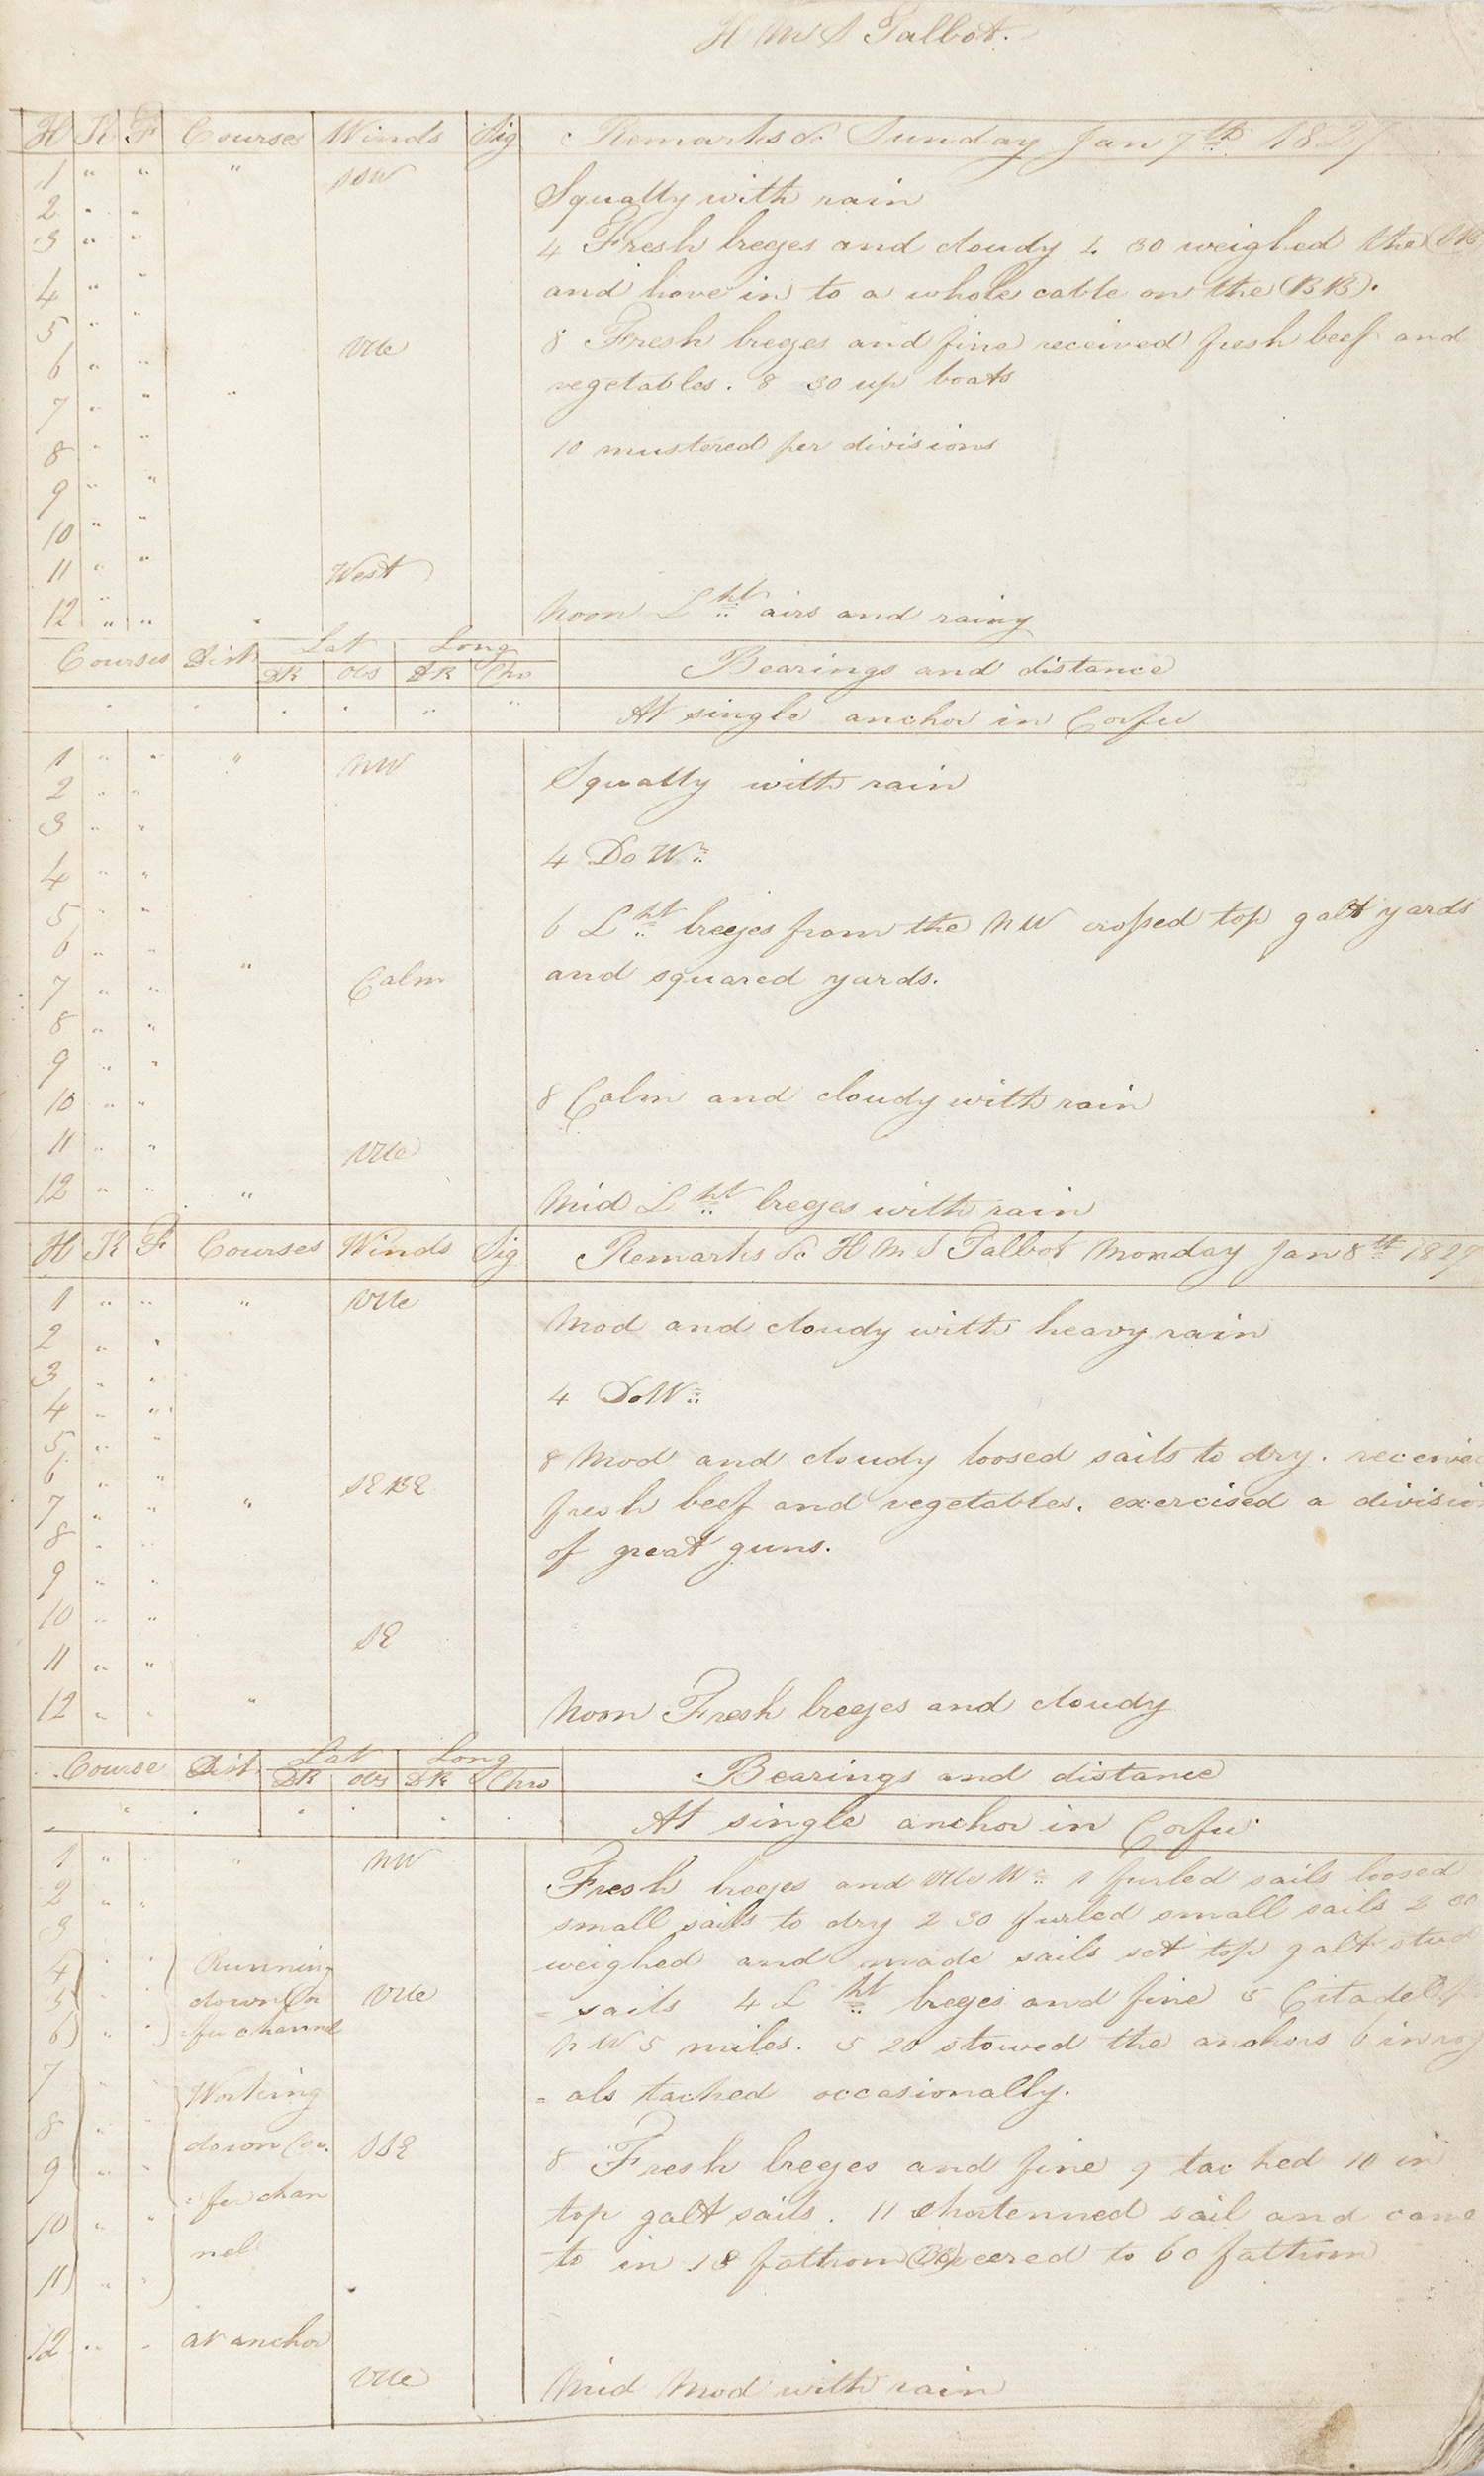 H M S Talbot.
H K F Courses Winds Sig Remarks &c Sunday Jan 7th 1827
1 " " " SSW
Squally with rain
2 " "
3 " " 4 Fresh brezes and cloudy 4. 30 weighed the
4 " " and hove in to a whole cable on the (BB).
5 " " Vble 8 Fresh brezes and fine received fresh beef and
6 " " vegetables. 8 30 up boats
7 " " "
8 " " 10 mustered per divisions
9 " "
10 " "
11 " " West
12 " " " Noon Lht airs and rainy
Courses Dist Lat Long Bearings and distance
DR Obs DR Chro
At single anchor in Corfu
1 " " " NW Squally with rain
2 " "
3 " "
4 " " 4 Do Wr
5 " " 6 Lht brezes from the NW crossed top galt yards
6 " "
7 " " " Calm and squared yards.
8 " "
9 " "
10 " " 8 Calm and cloudy with rain
11 " " Vble
12 " " " Mid Lht brezes with rain
H K F Courses Winds Sig Remarks &c H M S Talbot Monday Jan 8th 1827
1 " " " Vble Mod and cloudy with heavy rain
2 " "
3 " "
4 " " 4 Do Wr
5 " " 8 Mod and cloudy loosed sails to dry. receive
6 " " SEBE
7 " " " fresh beef and vegetables. exercised a divisio
8 " " of great guns.
9 " "
10 " " SE
11 " "
12 " " " Noon Fresh brezes and cloudy
Course Dist Lat Long Bearings and distance
DR obs DR Chro
At single anchor in Corfu
1 " " " NW Fresh brezes and Vble Wr 1 furled sails loosed
2 " " small sails to dry 2 30 furled small sails 2
3
4 " " Running weighed and made sails set top galt stud
5 " " down Cor Vble = sails 4 Lht brezes and fine 5 Citadel
6 " " =fu channel NW 5 miles. 5 20 stowed the anchors 6 in roy
7 " " Working = als tacked occasionally.
8 " " down Cor. SSE 8 Fresh brezes and fine 9 tacked 10 in
9 " " =fu chan
10 " " nel top galt sails. 11 shortenned sail and came
11 " " to in 18 fathom veered to 60 fathom
12 " " at anchor
Vble Mid Mod with rain